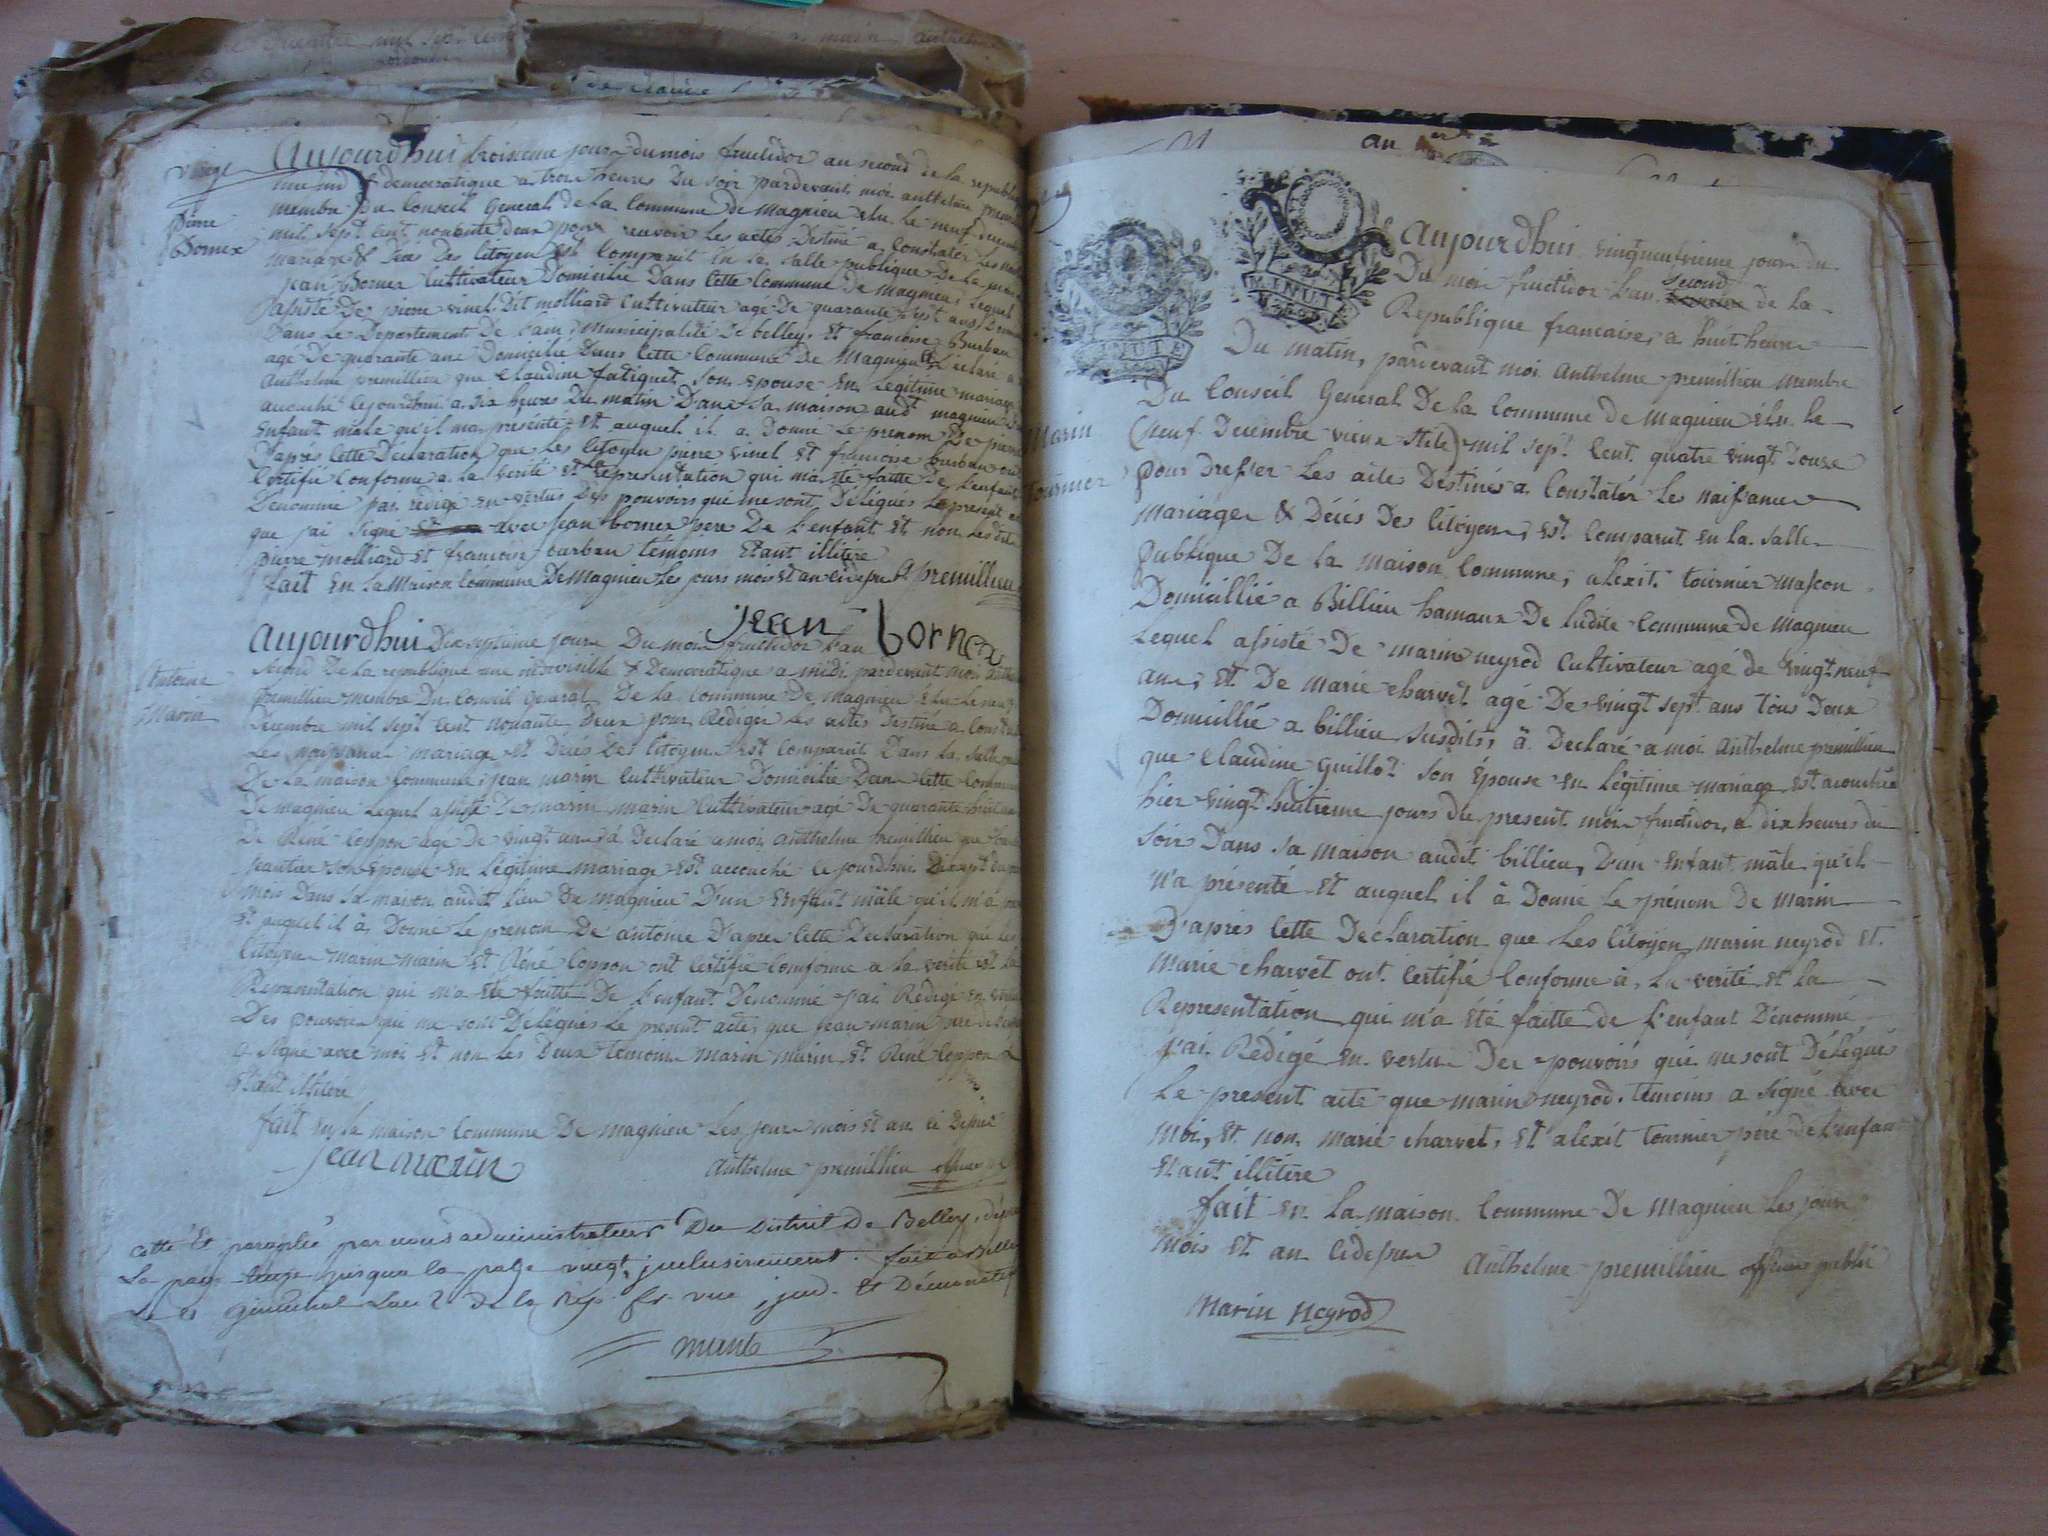 vingt
Aujourdhui troisieme jour du mois fructidor an second de la republi
une ind & democratique a trois heures Du soir pardevant moi anthelme premi
membre Du Conseil General de la Commune De magnieu elu le neuf Decem
mil sept Cent nonente deux pour recevoir les actes Destiné a Constater les nai
pierre
Bornex
mariage & Deces Des Citoyen Est Comparut En la Salle publique De la mai
jean Bornex Cultivateur Domicilie Dans Cette Commune de magnieu Lequel
assisté De pierre vinel dit molliard Cultivateur agé De quarante sept ans Dom
Dans Le Departement De L'ain Municipalité De belley, Et francoise Burban
age De quarante ans Domicilié Dans Cette Commune De Magnieu à Declaré a
Anthelme premillieu que Claudine fatiguet Son Epouse En Legitime mariage
accouché Cejourdhui a six heures Du matin Dans Sa maison audt magnieu D'un
Enfant male qu'il ma présenté Et auquel il a Donné Le prenom De pierre
D'apres Cette Déclaration que Les Citoyen pierre vinel Et francoise burban ont
Certifié Conforme a La Verité Et Representation qui ma été faitte De l'enfant
Denommé j'ai rédigé en vertus Des pouvoirs qui me sont Délégués Le présent ac
que j'ai Signé avec jean bornex pere De L'enfant Et non Les dits
pierre molliard Et francoise burban témoins Etant illitéré
fait En La Maison Commune De Magnieu Les jours mois Et an cidessus A premillieu
jean bornex
Aujourdhui Dixseptieme jour Du moi fructidor L'an
Antoine
Marin
Second De La republique une indivisible & Democratique a midi pardevant moi Anth
premillieu membre Du Conseil General De La Commune De magnieu Elu Le neuf
Decembre mil Sept Cent nonante Deux pour Rédiger Les actes Destiné a Const
Les naissance mariage Et Décés Des Citoyen Est Comparut Dans la Salle pu
De La maison Commune, jean marin Cultivateur Domicilié Dans Cette Commune
De magnieu Lequel assisté De marin marin Cultivateur agé De quarante huit an
De René Coppon age de vingt an à Declaré a moi Anthelme premillieu que
jeantier son Epouse en Légitime mariage Est accouché Ce jourdhui Dixsept du
mois Dans Sa maison audit Lieu De magnieu D'un Enfant mâle qu'il m'a pre
Et auquel il à Donné Le prenom De antoine D'apres Cette Declaration que Les
Citoyen marin marin Et Réné Coppon ont Certifié Conforme a La verité Et La
Représentation qui m'a été faitte De L'enfant Dénommé j'ai Rédigé en vertu
Des pouvoirs qui me sont Délégués Le présent acte, que jean marin pere de L'enf
a Signé avec moi Et non Les Deux temoins marin marin Et Réné Coppon
Etant illitéré
fait En La maison Commune De magnieu Les jour mois Et an ci Dessus
jean marin
Anthelme premillieu officier
Cotté Et paraphé par nous administrateurs Du District De Belley, depuis
La page jusqua la page vingt, inclusivement. fait a Belley
Le Germinal Lan 2 de la Rep. fr. une, ind. et Démocratiq
an
MINUTE
MINUTE
Aujourdhui vingtneuvieme jour du
Du moi fructidor L'an second de la
Republique francaise, a huit heures
Du matin, pardevant moi Anthelme premillieu Membre
Du Conseil General De la Commune de Magnieu élu le
marin
tournier
(neuf Decembre vieux stile) mil sept Cent quatre vingt Douze
pour dresser Les actes Destinés a Constatér Le naissance
Mariage & Décés Des Citoyens, Est Comparut En la Salle
Publique De la maison Commune, alexit tournier masson
Domicillié a Billieu hamaux De ludite Commune de Magnieu
Lequel assisté De marin neyrod Cultivateur agé de vingt neuf
ans, Et De Marie charvet agé De vingt sept ans Tous Deux
Domicillié a billieu Susdits, à Declaré a moi Anthelme premillieu
que Claudine Guillot Son Épouse en Légitime mariage Est accouchée
hier vingt huitieme jours du present moi fructidor, a dix heures du
soir Dans sa maison audit billieu, D'un Enfant mâle qu'il
m'a présenté Et auquel il à Donné Le prénom De Marin
D'après Cette Declaration que Les Citoyen marin neyrod Et
Marie charvet ont Certifié Conforme à La verité Et La
Représentation qui m'a été faitte de L'enfant Dénommé
j'ai Rédigé en vertu Des pouvoirs qui me sont Délégués
Le present acte que marin neyrod, temoins a Signé avec
Moi, Et non Marie charvet, Et alexit tournier pére de L'enfant
Etant illitére
fait En La maison Commune De Magnieu Les jour
Mois Et an cidessus
Anthelme premillieu officier public
Marin Neyrod